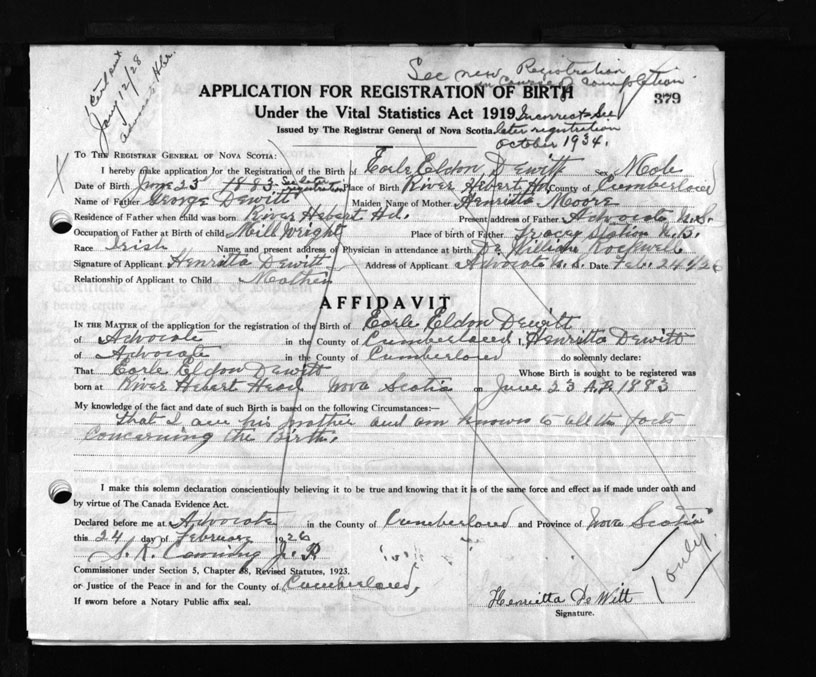 Jany 12/28
See new Registration
in course of completion
APPLICATION FOR REGISTRATION OF BIRTH
379
Under the Vital Statistics Act 1919
Incorrect See
Issued by The Registrar General of Nova Scotia
later registration
October 1934.
X
TO THE REGISTRAR GENERAL OF NOVA SCOTIA:
I hereby make application for the Registration of the Birth of Earle Eldon Dewitt Sex Male
Date of Birth June 23 1883 See later registration Place of Birth River Hebert Hd. County of Cumberland
Name of Father George Dewitt Maiden Name of Mother Henritta Moore
Residence of Father when child was born River Hebert Hd. Present address of Father Advocate N.S.
Occupation of Father at Birth of child Mill Wright Place of birth of Father Tracey Station N.B.
Race Irish Name and present address of Physician in attendance at birth Dr. William Rockwell
Signature of Applicant Henritta Dewitt Address of Applicant Advocate N.S. Date Feb. 24/26
Relationship of Applicant to Child Mother
AFFIDAVIT
IN THE MATTER of the application for the registration of the Birth of Earle Eldon Dewitt
of Advocate in the County of Cumberland I, Henritta Dewitt
of Advocate in the County of Cumberland do solemnly declare:
That Earle Eldon Dewitt Whose Birth is sought to be registered was
born at River Hebert Head Nova Scotia on June 23 A.D. 1883
My knowledge of the fact and date of such Birth is based on the following Circumstances:—
That I am his mother and am known to all the facts
concerning the Birth.
I make this solemn declaration conscientiously believing it to be true and knowing that it is of the same force and effect as if made under oath and
by virtue of The Canada Evidence Act.
Declared before me at Advocate in the County of Cumberland and Province of Nova Scotia
this 24 day of February 1926
S. K. Canning J. P.
Commissioner under Section 5, Chapter 38, Revised Statutes, 1923.
or Justice of the Peace in and for the County of Cumberland,
1 only
If sworn before a Notary Public affix seal.
Henrietta DeWitt
Signature.